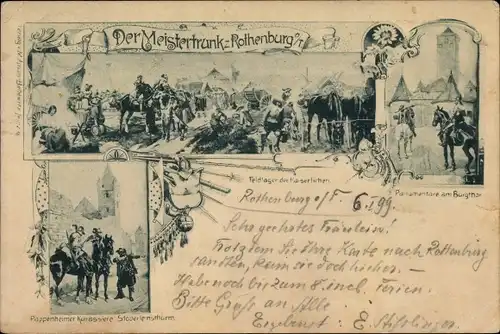 Der Meistertrunk-Rothenburg o/T.
Feldlager der Kaiserlichen
Parlamentäre am Burgthor
Pappenheimer Kürassiere Stöberleinsthurm.
Rothenburg o/T. 6. 99
Sehr geehrtes Fräulein!
Trotzdem Sie Ihre Karte nach Rottenburg
sandten, kam sie doch hieher. —
Habe noch bis zum 8. incl. Ferien.
Bitte Gruß an Alle.
Ergebenst: E.